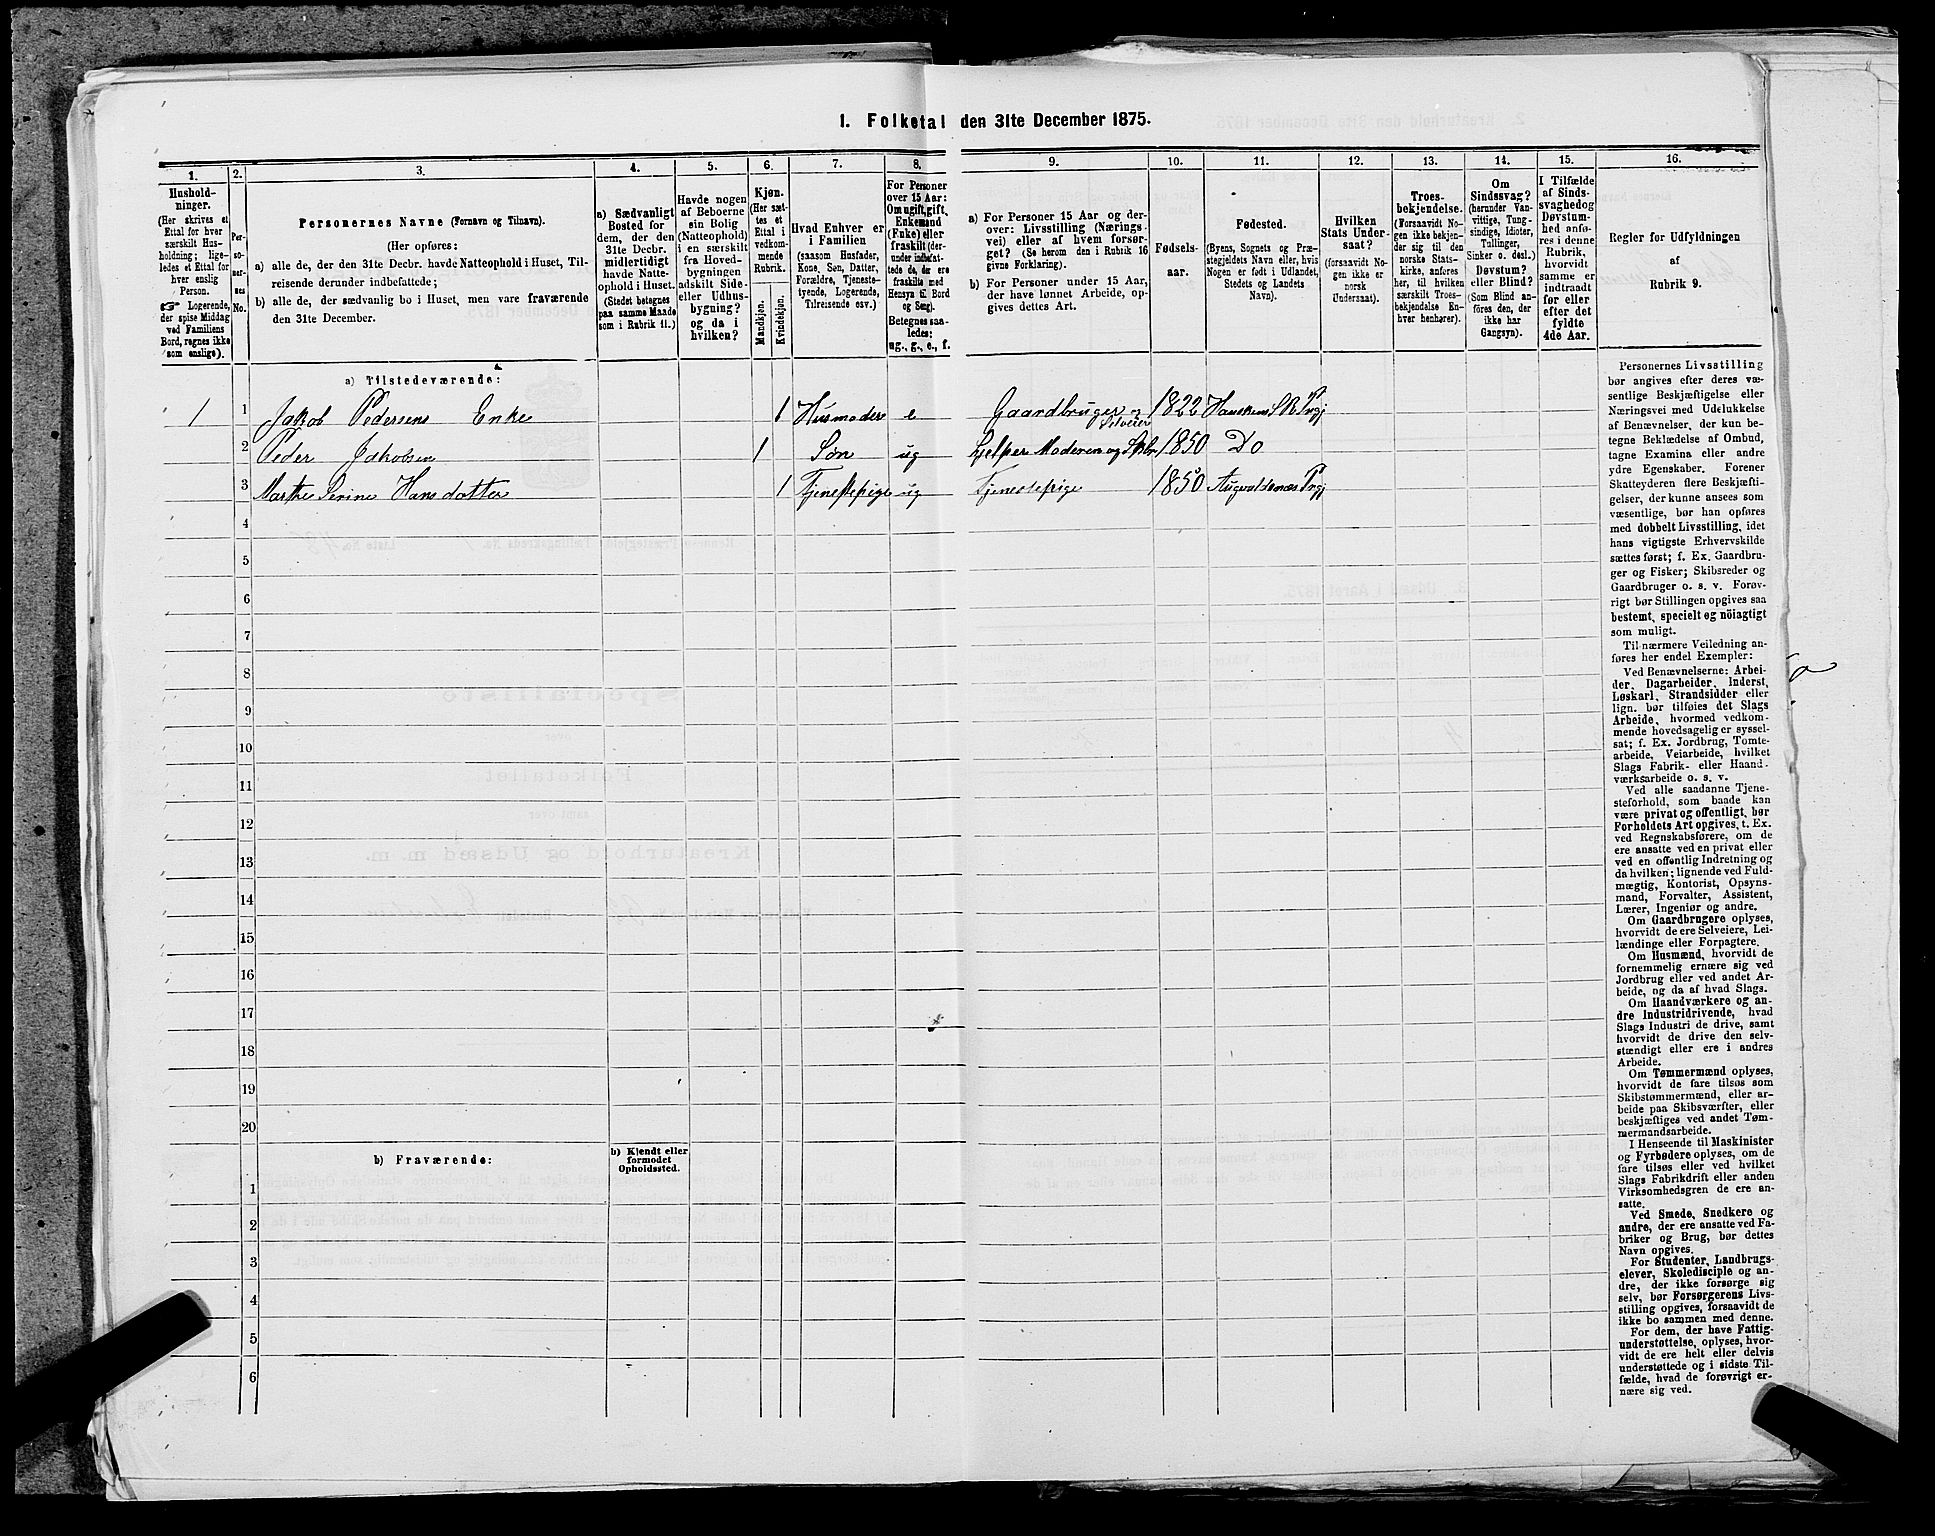 1. Folketal den 31te December 1875.
1. 2. 3. 4. 5. 6. 7. 8. 9. 10. 11. 12. 13. 14. 15. 16.
Hushold-
ninger.
(Her skrives et
Ettal for hver
særskilt Hus-
holdning; lige-
ledes et Ettal for
hver enslig
Person.
☞ Logerende,
der spise Middag
ved Familiens
Bord, regnes ikke
som enslige).
Per-
so-
ner-
nes
No.
Personernes Navne (Fornavn og Tilnavn).
(Her opføres:
a) alle de, der den 31te Decbr. havde Natteophold i Huset, Til-
reisende derunder indbefattede;
b) alle de, der sædvanlig bo i Huset, men vare fraværende
den 31te December.
a) Sædvanligt
Bosted for
dem, der den
31te Decbr.
midlertidigt
havde Natte-
ophold i Huset.
(Stedet betegnes
paa samme Maade
som i Rubrik 11.)
Havde nogen
af Beboerne
sin Bolig
(Natteophold)
i en særskilt
fra Hoved-
bygningen
adskilt Side-
eller Udhus-
bygning?
og da i
hvilken?
Kjøn.
(Her sæt-
tes et
Ettal i
vedkom-
mende
Rubrik.
Mandkjøn.
Kvindekjøn.
Hvad Enhver er
i Familien
(saasom Husfader,
Kone, Søn, Datter,
Forældre, Tjeneste-
tyende, Logerende,
Tilreisende osv.)
For Personer
over 15 Aar:
Om ugift, gift,
Enkemand
(Enke) eller
fraskilt (der-
under indbefat-
tede de, der ere
fraskilte med
Hensyn til Bord
og Seng).
Betegnes saa-
ledes:
ug., g., e., f.
a) For Personer 15 Aar og der-
over: Livsstilling (Nærings-
vei) eller af hvem forsør-
get? (Se herom den i Rubrik 16
givne Forklaring).
b) For Personer under 15 Aar,
der have lønnet Arbeide, op-
gives dettes Art.
Fødsels-
aar.
Fødested.
(Byens, Sognets og Præ-
stegjeldets Navn eller, hvis
Nogen er født i Udlandet,
Stedets og Landets
Navn).
Hvilken
Stats Under-
saat?
(forsaavidt No-
gen ikke er
norsk
Undersaat).
Troes-
bekjendelse.
(Forsaavidt No-
gen ikke bekjen-
der sig til den
norske Stats-
kirke, anføres
her, til hvilken
særskilt Troes-
bekjendelse En-
hver henhører).
Om
Sindssvag?
(herunder Van-
vittige, Tung-
sindige, Idioter,
Tullinger,
Sinker o. desl.)
Døvstum?
eller Blind?
(Som Blind an-
føres den, der
ikke har
Gangsyn).
I Tilfælde
af Sinds-
svaghed og
Døvstum-
hed anfø-
res i denne
Rubrik,
hvorvidt
samme er
indtraadt
før eller
efter det
fyldte
4de Aar.
Regler for Udfyldningen
af
Rubrik 9.
a) Tilstedeværende:
1 1 Jakob Pedersens Enke 1 Husmoder e Gaardbruger og Selveier 1822
2 Peder Jakobsen 1 Søn ug hjelper Moderen og 1850 Do
3 Marthe Serine Hansdatter 1 Tjenestepige ug Tjenestepige 1850 Augvaldsnæs
4
5
6
7
8
9
10
11
12
13
14
15
16
17
18
19
20
b) Fraværende:
b) Kjendt eller
formodet
Opholdssted.
1
2
3
4
5
6
Personernes Livsstilling
bør angives efter deres væ-
sentlige Beskjæftigelse eller
Næringsvei med Udelukkelse
af Benævnelser, der kun be-
tegne Beklædelse af Ombud,
tagne Examina eller andre
ydre Egenskaber. Forener
Skatteyderen flere Beskjæfti-
gelser, der kunne ansees som
væsentlige, bør han opføres
med dobbelt Livsstilling, idet
hans vigtigste Erhvervskilde
sættes først; f. Ex. Gaardbru-
ger og Fisker; Skibsreder og
Gaardbruger o. s. v. Forøv-
rigt bør Stillingen opgives saa
bestemt, specielt og nöiagtigt
som muligt.
Til nærmere Veiledning an-
føres her endel Exempler:
Ved Benævnelserne: Arbei-
der, Dagarbeider, Inderst,
Løskarl, Strandsidder eller
lign. bør tilføies det Slags
Arbeide, hvormed vedkom-
mende hovedsagelig er syssel-
sat; f. Ex. Jordbrug, Tomte-
arbeide, Veiarbeide, hvilket
Slags Fabrik- eller Haand-
værksarbeide o. s. v.
Ved alle saadanne Tjene-
steforhold, som baade kan
være privat og offentligt, bør
Forholdets Art opgives, t. Ex.
ved Regnskabsførere, om de
ere ansatte ved en privat eller
ved en offentlig Indretning og
da hvilken; lignende ved Fuld-
mægtig, Kontorist, Opsyns-
mand, Forvalter, Assistent,
Lærer, Ingeniør og andre.
Om Gaardbrugere oplyses,
hvorvidt de ere Selveiere, Lei-
lændinge eller Forpagtere.
Om Husmænd, hvorvidt de
fornemmelig ernære sig ved
Jordbrug eller ved andet Ar-
beide, og da af hvad Slags.
Om Haandværkere og an-
dre Industridrivende, hvad
Slags Industri de drive, samt
hvorvidt de drive den selv-
stændigt eller ere i andres
Arbeide.
Om Tømmermænd oplyses,
hvorvidt de fare tilsøs som
Skibstømmermænd, eller ar-
beide paa Skibsværfter, eller
beskjæftiges ved andet Tøm-
mermandsarbeide.
I Henseende til Maskinister
og Fyrbødere oplyses, om de
fare tilsøs eller ved hvilket
Slags Fabrikdrift eller anden
Virksomhedsgren de ere an-
satte.
Ved Smede, Snedkere og
andre, der ere ansatte ved Fa-
briker og Brug, bør dettes
Navn opgives.
For Studenter, Landbrugs-
elever, Skoledisciple og an-
dre, der ikke forsørge sig
selv, bør Forsørgerens Livs-
stilling opgives, forsaavidt de
ikke bo sammen med denne.
For dem, der have Fattig-
understøttelse, oplyses, hvor-
vidt de ere helt eller delvis
understøttede og i sidste Til-
fælde, hvad de forøvrigt er-
nære sig ved.